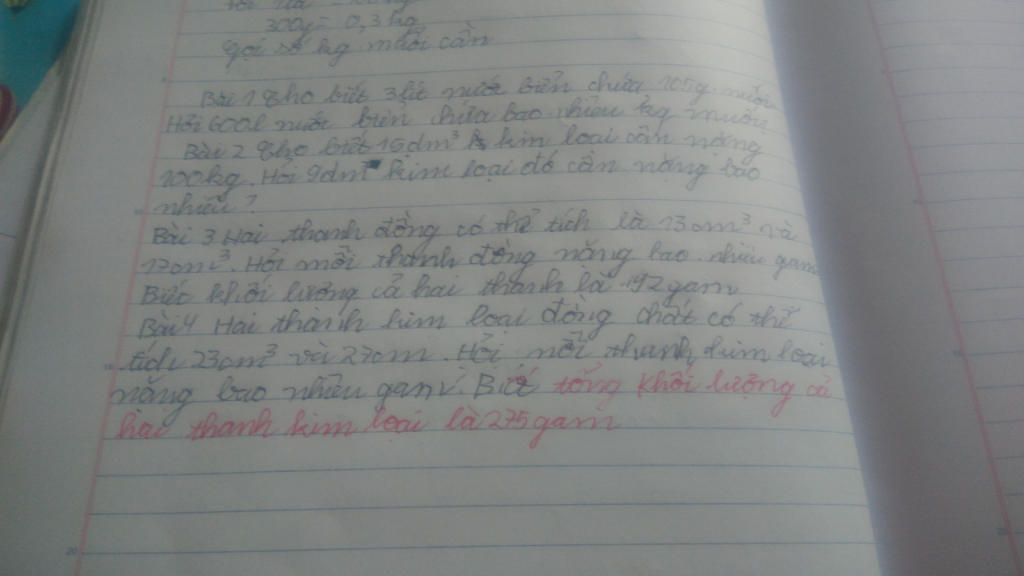 300g = 0,3 kg
Gọi số kg muối cần
Bài 1 Cho biết 3 lít nước biển chứa 105g muối
Hỏi 600l nước biển chứa bao nhiêu kg muối
Bài 2 Cho biết 15dm³ kim loại cân nặng
100kg. Hỏi 9dm³ kim loại đó cân nặng bao
nhiêu?
Bài 3 Hai thanh đồng có thể tích là 13cm³ và
17cm³. Hỏi mỗi thanh đồng nặng bao nhiêu gam
Biết khối lượng cả hai thanh là 192gam
Bài 4 Hai thanh kim loại đồng chất có thể
tích 23cm³ và 27cm. Hỏi mỗi thanh kim loại
nặng bao nhiêu gam. Biết tổng khối lượng cả
hai thanh kim loại là 275gam